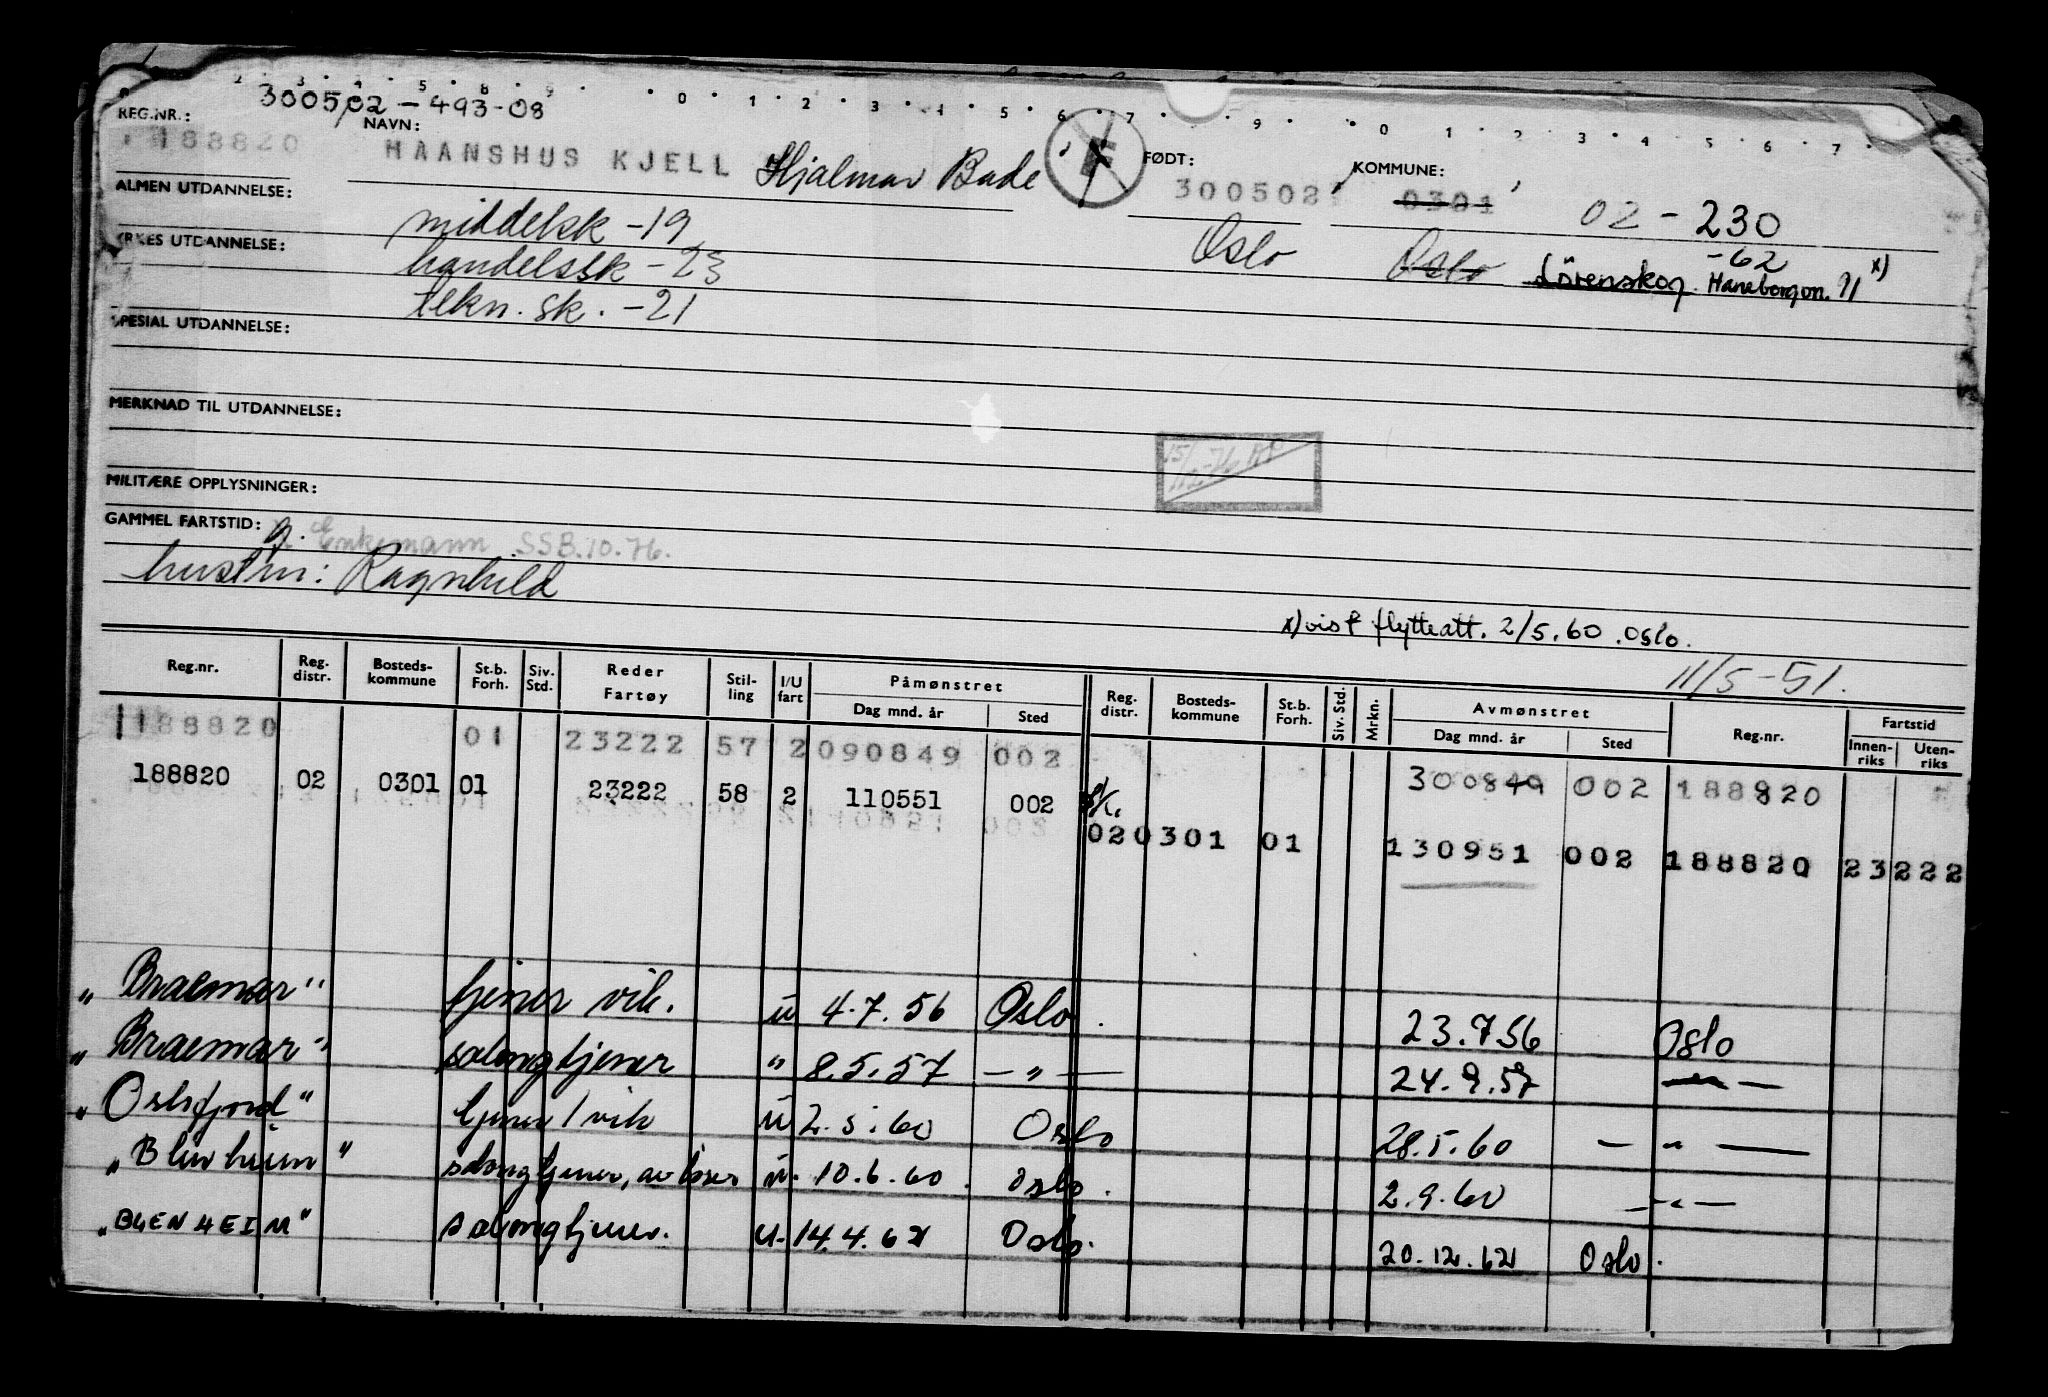 2 · 3 · 4 · 5 · 8 · 9 · · 0 · 1 · 2 · 3 · 4 · 5 · 6 · 7 · 9 · · 0 · 1 · 2 · 3 · 4 · 5 · 6 · 7 ·
300502-493-08
REG.NR.: NAVN: FØDT: KOMMUNE:
188820 HAANSHUS KJELL Hjalmar Bade 300502 0301 02-230
ALMEN UTDANNELSE: middelsk -19 Oslo Oslo Lörenskog. Haneborgvn. 71 x)
-62
YRKES UTDANNELSE: handelssk -23
tekn. sk. -21
SPESIAL UTDANNELSE:
MERKNAD TIL UTDANNELSE:
15/12-76
MILITÆRE OPPLYSNINGER:
GAMMEL FARTSTID: g. Enkemann SSB.10.76.
hustru: Ragnhild
x) vist flytteatt. 2/5.60 . Oslo.
11/5-51.
Reg.nr. Reg. distr. Bosteds- kommune St.b. Forh. Siv. Std. Reder Fartøy Stil- ling I/U fart Påmønstret Dag mnd. år Sted Reg. distr. Bosteds- kommune St.b. Forh. Siv. Std. Mrkn. Avmønstret Dag mnd. år Sted Reg.nr. Fartstid Innen- riks Uten- riks
188820 01 23222 57 2 090849 002 300849 002 188820
188820 02 0301 01 23222 58 2 110551 002
02 0301 01 130951 002 188820 23222
"Braemar" tjener vik. u 4.7.56 Oslo. 23.7.56 Oslo
"Braemar" salongtjener " 8.5.57 — " — 24.9.57 — " —
"Oslofjord" tjener/vik u 2.5.60 Oslo 28.5.60 — " —
"Blenheim" salongtjener, avløser u. 10.6.60. Oslo. 2.9.60 — " —
"BLENHEIM" salongtjener. u. 14.4.62 Oslo. 20.12.62 Oslo.